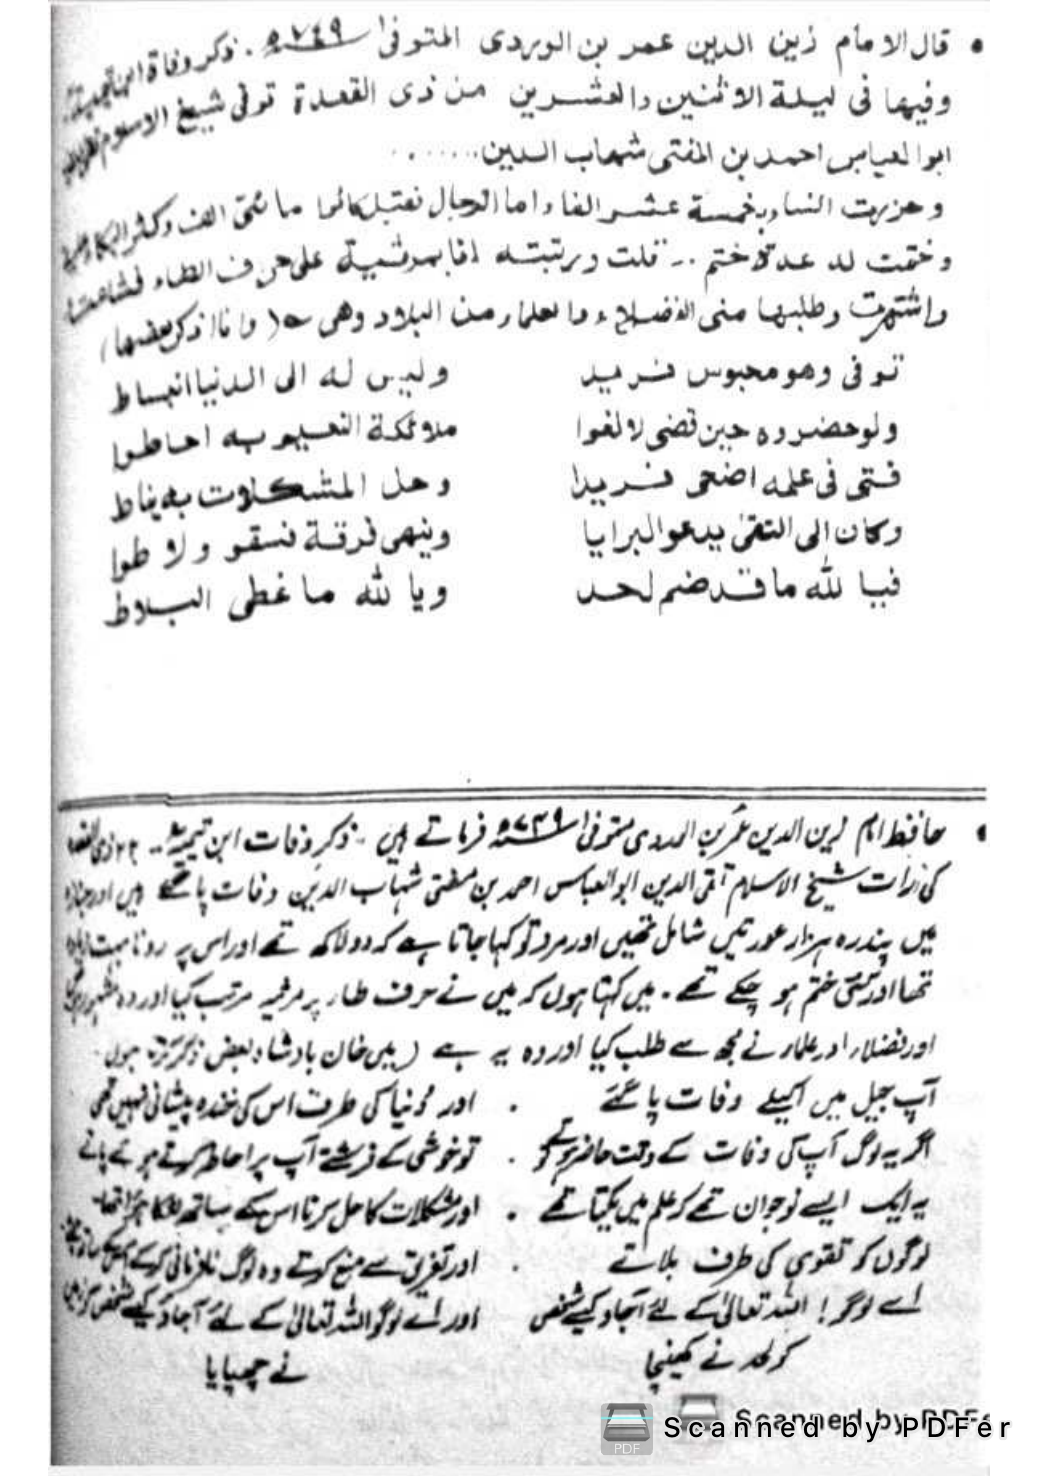 • قال الامام زين الدين عمر بن الوردى المتوفىٰ ٧٤٩ھ . ذكر وفاة ابن تيمية
وفيها فى ليلة الاثنين والعشرين من ذى القعدة توفى شيخ الاسلام
ابو العباس احمد بن المفتى شهاب الدين......
وحزرت النساء بخمسة عشر الفاء اما الرجال فقيل كانوا مائتى الف وكثر البكاء
وختمت له عدة ختم .. قلت ورتبته انا بمرثية على حرف الطاء فشاعت
واشتهرت وطلبها منى الفضلاء والعلماء من البلاد وهى ھ (وانا اذكر بعضها)
توفى وهو محبوس فريد وليس له الى الدنيا انبساط
ولو حضروه حين قضى لالفوا ملائكة النعيم به احاطوا
فتى فى علمه اضحى فريدا وحل المشكلات به يناط
وكان الى التقىٰ يدعو البرايا وينهى فرقة فسقو ولاطوا
فيا لله ما قد ضم لحد ويا لله ما غطى البلاط
• حافظ امام زين الدين عمر بن الوردى متوفىٰ ٧٤٩ھ فرماتے ہیں . ذکر وفات ابن تیمیہ .. ٢٢ ذی
کی رات شیخ الاسلام تقی الدین ابو العباس احمد بن مفتی شہاب الدین وفات پا گئے ہیں اور
میں پندرہ ہزار عورتیں شامل تھیں اور مرد تو کہا جاتا ہے کہ دو لاکھ تھے اور اس پر رونا بہت
تھا اور کئی ختم ہو چکے تھے . میں کہتا ہوں کہ میں نے حرف طاء پر مرثیہ مرتب کیا اور وہ مشہور
اور فضلاء اور علماء نے مجھ سے طلب کیا اور وہ یہ ہے (میں خان بادشاہ بعض ذکر کرتا ہوں
آپ جیل میں اکیلے وفات پا گئے . اور دنیا کی طرف اس کی خندہ پیشانی نہیں تھی
اگر یہ لوگ آپ کی وفات کے وقت حاضر ہوتے تو . تو خوشی کے فرشتے آپ پر احاطہ کرتے ہوئے پاتے
یہ ایک ایسے نوجوان تھے کہ علم میں یکتا تھے . اور مشکلات کا حل کرنا اس کے ساتھ
لوگوں کو تقوی کی طرف بلاتے . اور تفریق سے منع کرتے وہ لوگ نافرمانی کرکے
اے لوگو! اللہ تعالیٰ کے لئے آجاؤ کیسے شخص اور اے لوگو اللہ تعالیٰ کے لئے آجاؤ کیسے شخص
کو لحد نے کھینچا نے چھپایا
Scanned by PDFer
PDF